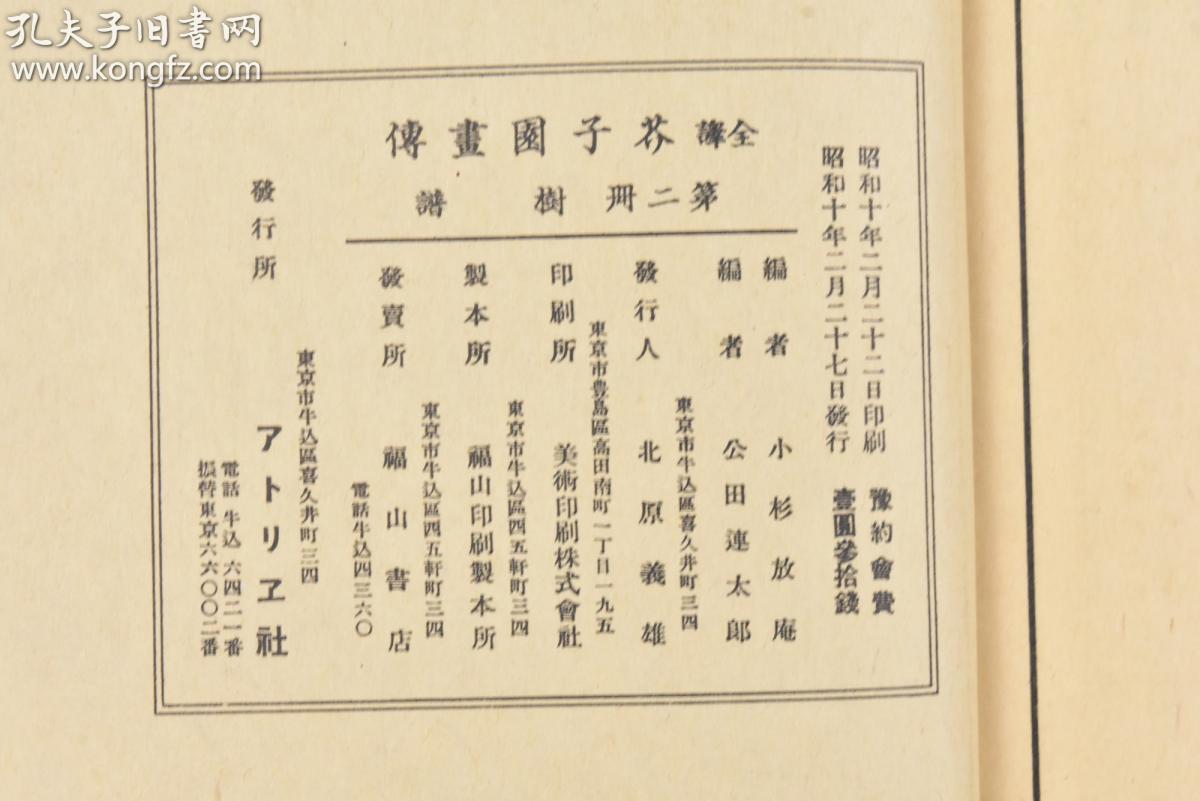 孔夫子旧书网
www.kongfz.com
昭和十年二月二十二日印刷
昭和十年二月二十七日發行
豫約會費
壹圓參拾錢
全譯 芥子園畫傳
第二册 樹譜
編者 小杉放庵
編者 公田連太郎
東京市牛込區喜久井町三四
發行人 北原義雄
東京市豊島區高田南町一丁目一九五
印刷所 美術印刷株式會社
東京市牛込區四五軒町三四
製本所 福山印刷製本所
東京市牛込區四五軒町三四
發賣所 福山書店
電話牛込四三六〇
東京市牛込區喜久井町三四
發行所 アトリヱ社
電話 牛込 六四二一番
振替東京六六〇〇二番